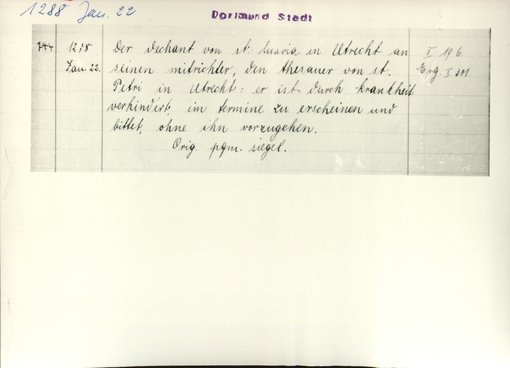 1288 Jan. 22
Dortmund Stadt
Der dechant von st. Maria in Utrecht an
seinen mitrichter, den thesauer von st.
Petri in Utrecht: er ist durch krankheit
verhindert im termine zu erscheinen und
bittet, ohne ihn vorzugehen.
Orig. pgm. siegel.
Jan. 22.
I 196
Erg I 301